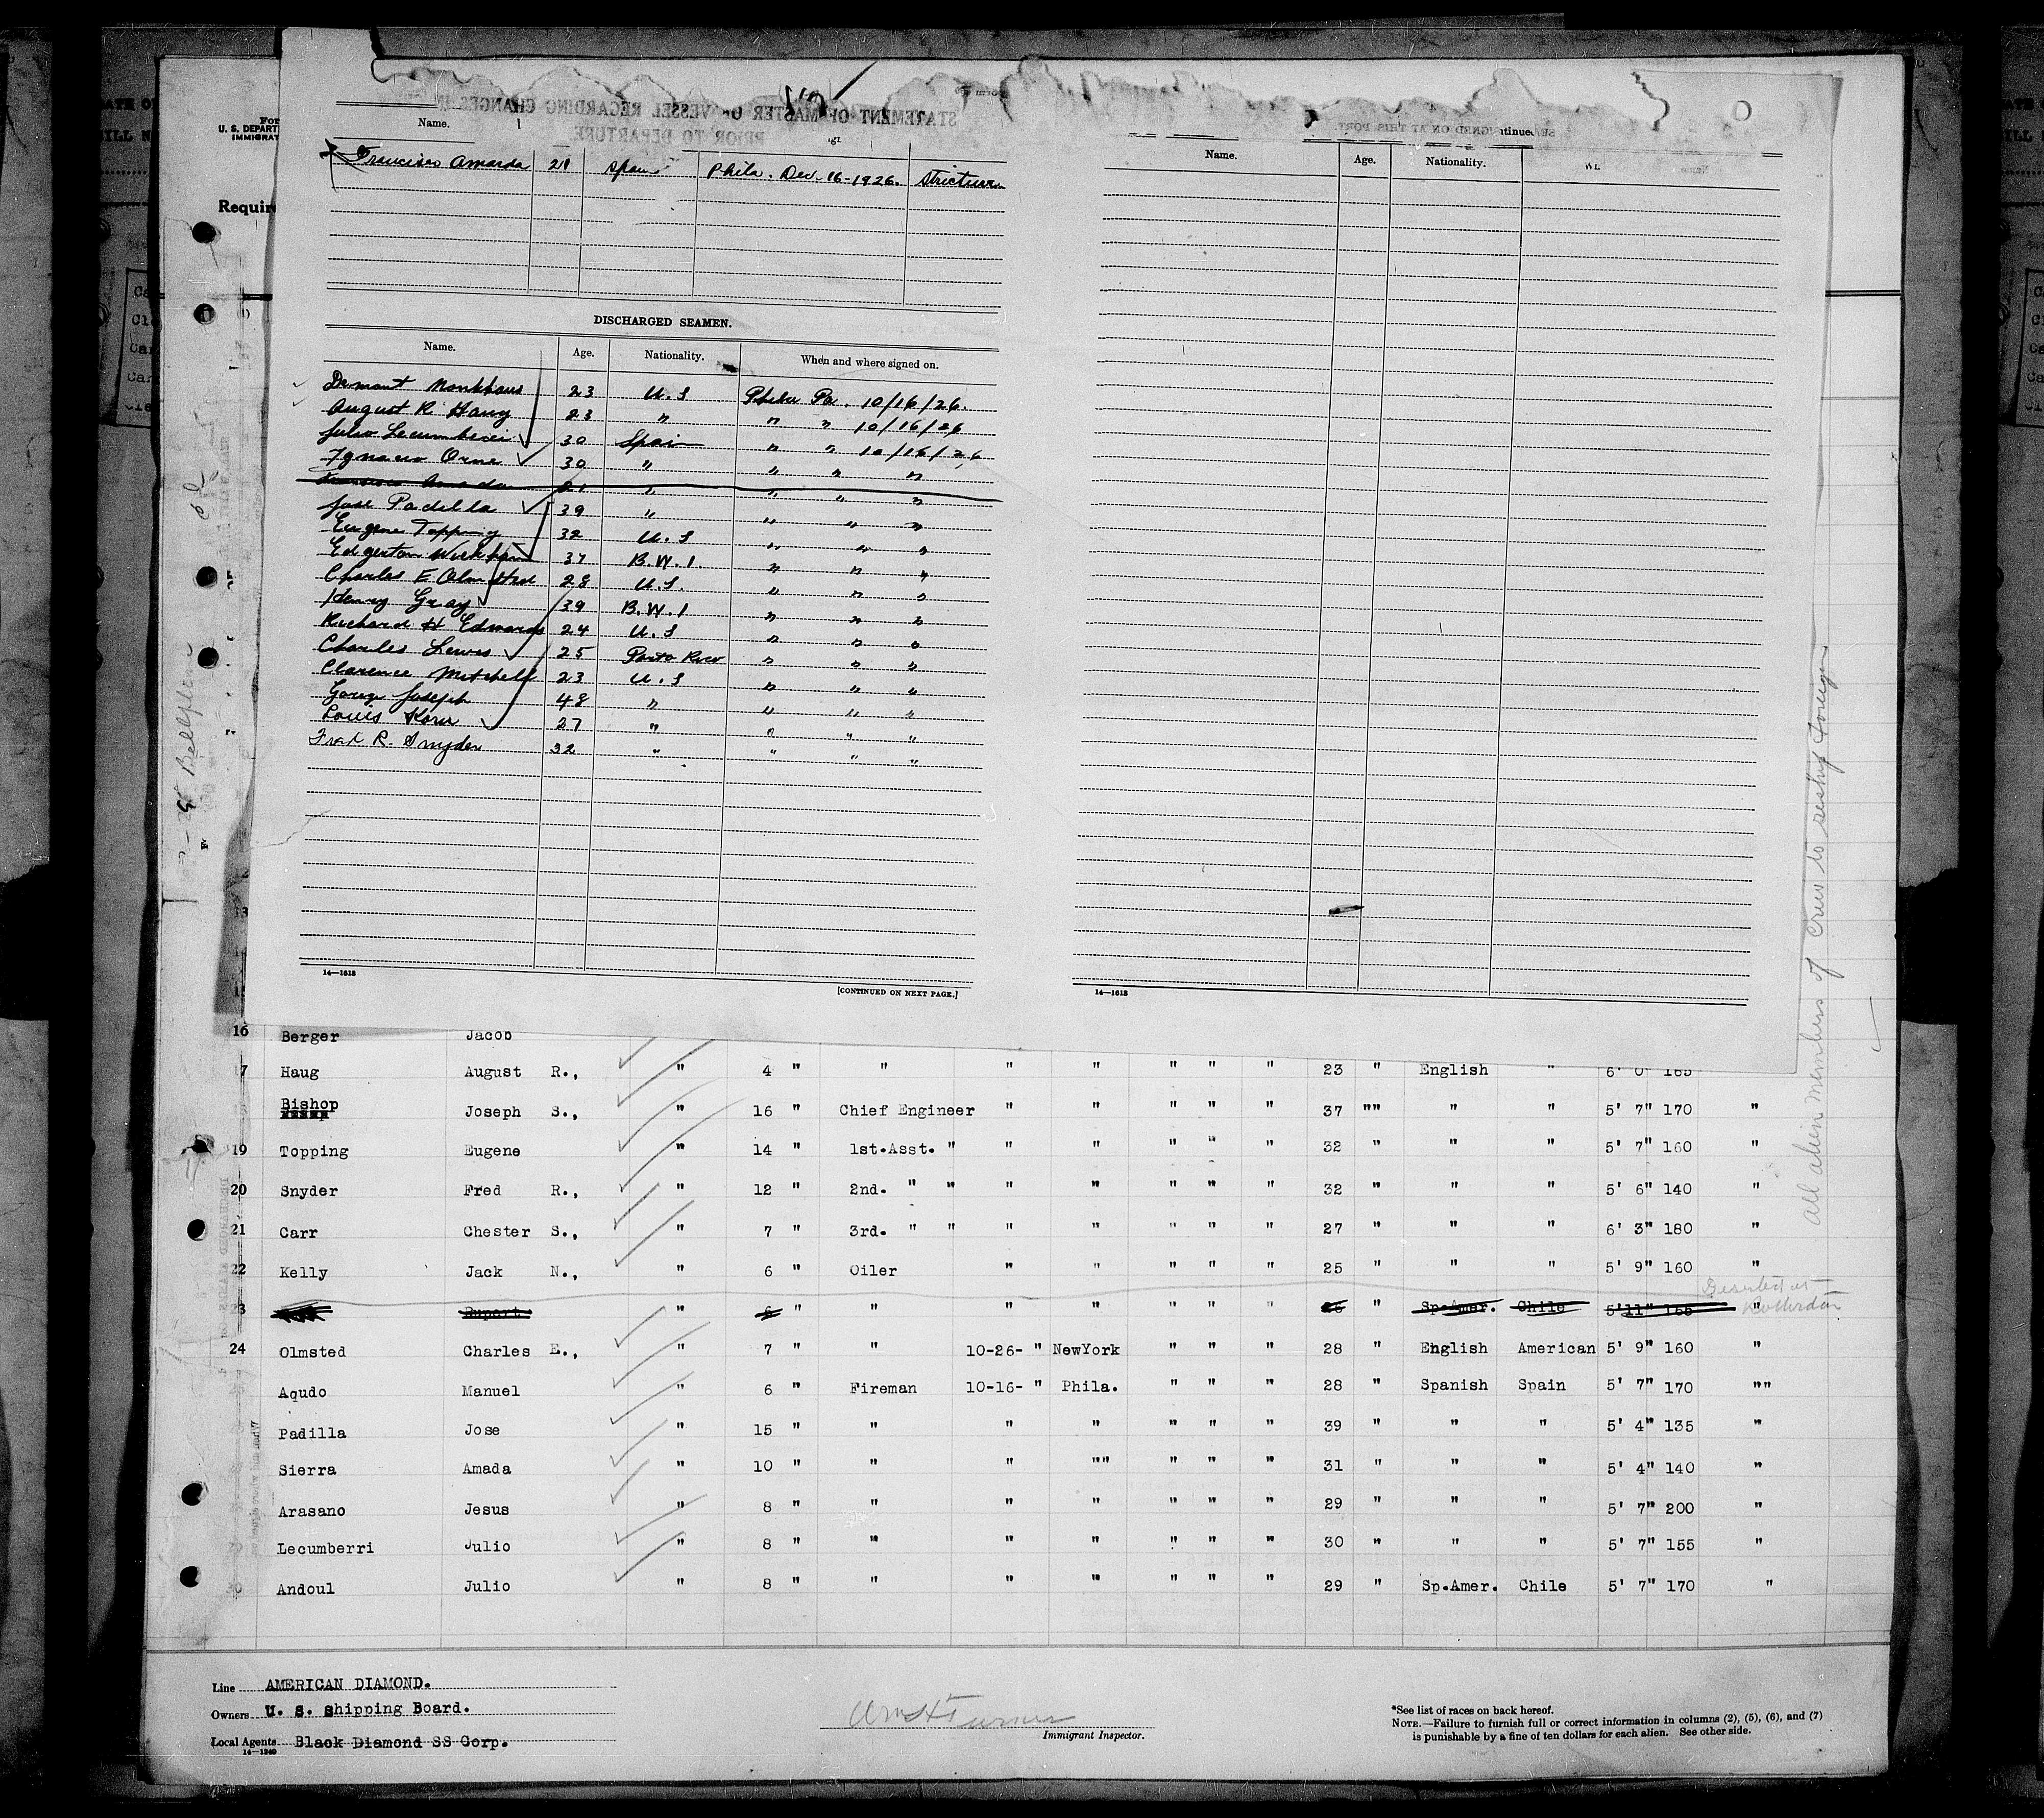 STATEMENT OF MASTER OF VESSEL REGARDING CHANGES IN
PRIOR TO DEPARTURE
Name.
Francisco Amarda 21 Spain Phila. Dec. 16-1926. Stricture
DISCHARGED SEAMEN.
Name. Age. Nationality. When and where signed on.
23 U.S Phila Pa. 10/16/26.
August R Haug 23 " " " 10/16/26
Julio Lecumberri 30 Spain " " 10/16/26
Ignacio Orne 30 " " " "
Francisco Amada 21 " " " "
Jose Padilla 39 " " " "
Eugene Topping 32 U.S " " "
Edgerton 37 B.W.I " " "
Charles E Olmsted 28 U.S. " " "
Henry Gray 39 B.W.I " " "
Richard H Edwards 24 U.S " " "
Charles Lewis 25 Porto Rico " " "
Clarence Mitchell 23 U.S " " "
Joseph 48 " " " "
Louis Korn 27 " " " "
R. Snyder 32 " " " "
14—1613
[CONTINUED ON NEXT PAGE.]
SEAMEN SIGNED ON AT THIS PORT
ntinued
Name. Age. Nationality.
14—1613
For
U. S. DEPART
IMMIGRAT
Requir
13
16 Berger Jacob
7 Haug August R., " 4 " " " " " " " 23 " English " 6' 0" 165
Bishop Joseph S., " 16 " Chief Engineer " " " " " 37 "" " " 5' 7" 170 "
19 Topping Eugene " 14 " 1st.Asst. " " " " " " 32 " " " 5' 7" 160 "
20 Snyder Fred R., " 12 " 2nd. " " " " " " " 32 " " " 5' 6" 140 "
21 Carr Chester S., " 7 " 3rd. " " " " " " " 27 " " " 6' 3" 180 "
22 Kelly Jack N., " 6 " Oiler " " " " " 25 " " " 5' 9" 160 "
Deserted at
23 Rupert " 6 " " " " " " " " Sp.Amer. Chile 5'11" 165 " Rotterdam
24 Olmsted Charles E., " 7 " " 10-26- " NewYork " " " 28 " English American 5' 9" 160 "
Aqudo Manuel " 6 " Fireman 10-16- " Phila. " " " 28 " Spanish Spain 5' 7" 170 ""
Padilla Jose " 15 " " " " " " " 39 " " " 5' 4" 135 "
Sierra Amada " 10 " " " "" " " " 31 " " " 5' 4" 140 "
Arasano Jesus " 8 " " " " " " " 29 " " " 5' 7" 200 "
Lecumberri Julio " 8 " " " " " " " 30 " " " 5' 7" 155 "
Andoul Julio " 8 " " " " " " " 29 " Sp.Amer. Chile 5' 7" 170 "
All alien members of Crew to reship foreign
Line AMERICAN DIAMOND.
Owners U. S. Shipping Board.
Local Agents Black Diamond SS Corp.
14—1240
Wm H Turner
Immigrant Inspector.
*See list of races on back hereof.
NOTE.—Failure to furnish full or correct information in columns (2), (5), (6), and (7)
is punishable by a fine of ten dollars for each alien. See other side.